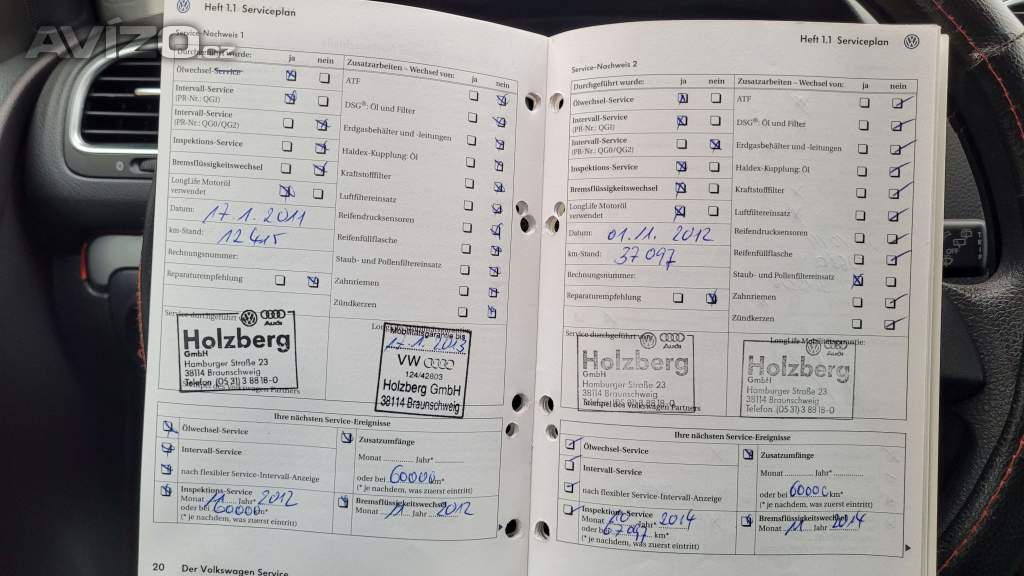 Avizo.cz
Heft 1.1 Serviceplan
Service-Nachweis 1
Durchgeführt wurde: ja nein
Ölwechsel-Service
Intervall-Service
(PR-Nr.: QG1)
Intervall-Service
(PR-Nr.: QG0/QG2)
Inspektions-Service
Bremsflüssigkeitswechsel
LongLife Motoröl
verwendet
Datum: 17.1.2011
km-Stand: 12415
Rechnungsnummer:
Reparaturempfehlung
Zusatzarbeiten – Wechsel von: ja nein
ATF
DSG®: Öl und Filter
Erdgasbehälter und -leitungen
Haldex-Kupplung: Öl
Kraftstofffilter
Luftfiltereinsatz
Reifendrucksensoren
Reifenfüllflasche
Staub- und Pollenfiltereinsatz
Zahnriemen
Zündkerzen
Service durchgeführt
Audi
Holzberg
GmbH
Hamburger Straße 23
38114 Braunschweig
Telefon (05 31) 3 88 18-0
Stempel des Volkswagen Partners
Mobilitätsgarantie bis
17.1.2013
VW
124/42803
Holzberg GmbH
38114 Braunschweig
Ihre nächsten Service-Ereignisse
Ölwechsel-Service
Intervall-Service
nach flexibler Service-Intervall-Anzeige
Inspektions-Service
Monat 11 Jahr* 2012
oder bei 60000 km*
(* je nachdem, was zuerst eintritt)
Zusatzumfänge
Monat Jahr*
oder bei 60000 km*
(* je nachdem, was zuerst eintritt)
Bremsflüssigkeitswechsel
Monat 11 Jahr 2012
20 Der Volkswagen Service
Heft 1.1 Serviceplan
Service-Nachweis 2
Durchgeführt wurde: ja nein
Ölwechsel-Service
Intervall-Service
(PR-Nr.: QG1)
Intervall-Service
(PR-Nr.: QG0/QG2)
Inspektions-Service
Bremsflüssigkeitswechsel
LongLife Motoröl
verwendet
Datum: 01.11.2012
km-Stand: 37097
Rechnungsnummer:
Reparaturempfehlung
Zusatzarbeiten – Wechsel von: ja nein
ATF
DSG®: Öl und Filter
Erdgasbehälter und -leitungen
Haldex-Kupplung: Öl
Kraftstofffilter
Luftfiltereinsatz
Reifendrucksensoren
Reifenfüllflasche
Staub- und Pollenfiltereinsatz
Zahnriemen
Zündkerzen
Service durchgeführt von
Audi
Holzberg
GmbH
Hamburger Straße 23
38114 Braunschweig
Stempel des Volkswagen Partners
LongLife Mobilitätsgarantie:
Audi
Holzberg
GmbH
Hamburger Straße 23
38114 Braunschweig
Telefon (05 31) 3 88 18-0
Ihre nächsten Service-Ereignisse
Ölwechsel-Service
Intervall-Service
nach flexibler Service-Intervall-Anzeige
Inspektions-Service
Monat 10 Jahr* 2014
oder bei 67097 km*
(* je nachdem, was zuerst eintritt)
Zusatzumfänge
Monat Jahr*
oder bei 60000 km*
(* je nachdem, was zuerst eintritt)
Bremsflüssigkeitswechsel
Monat 11 Jahr 2014